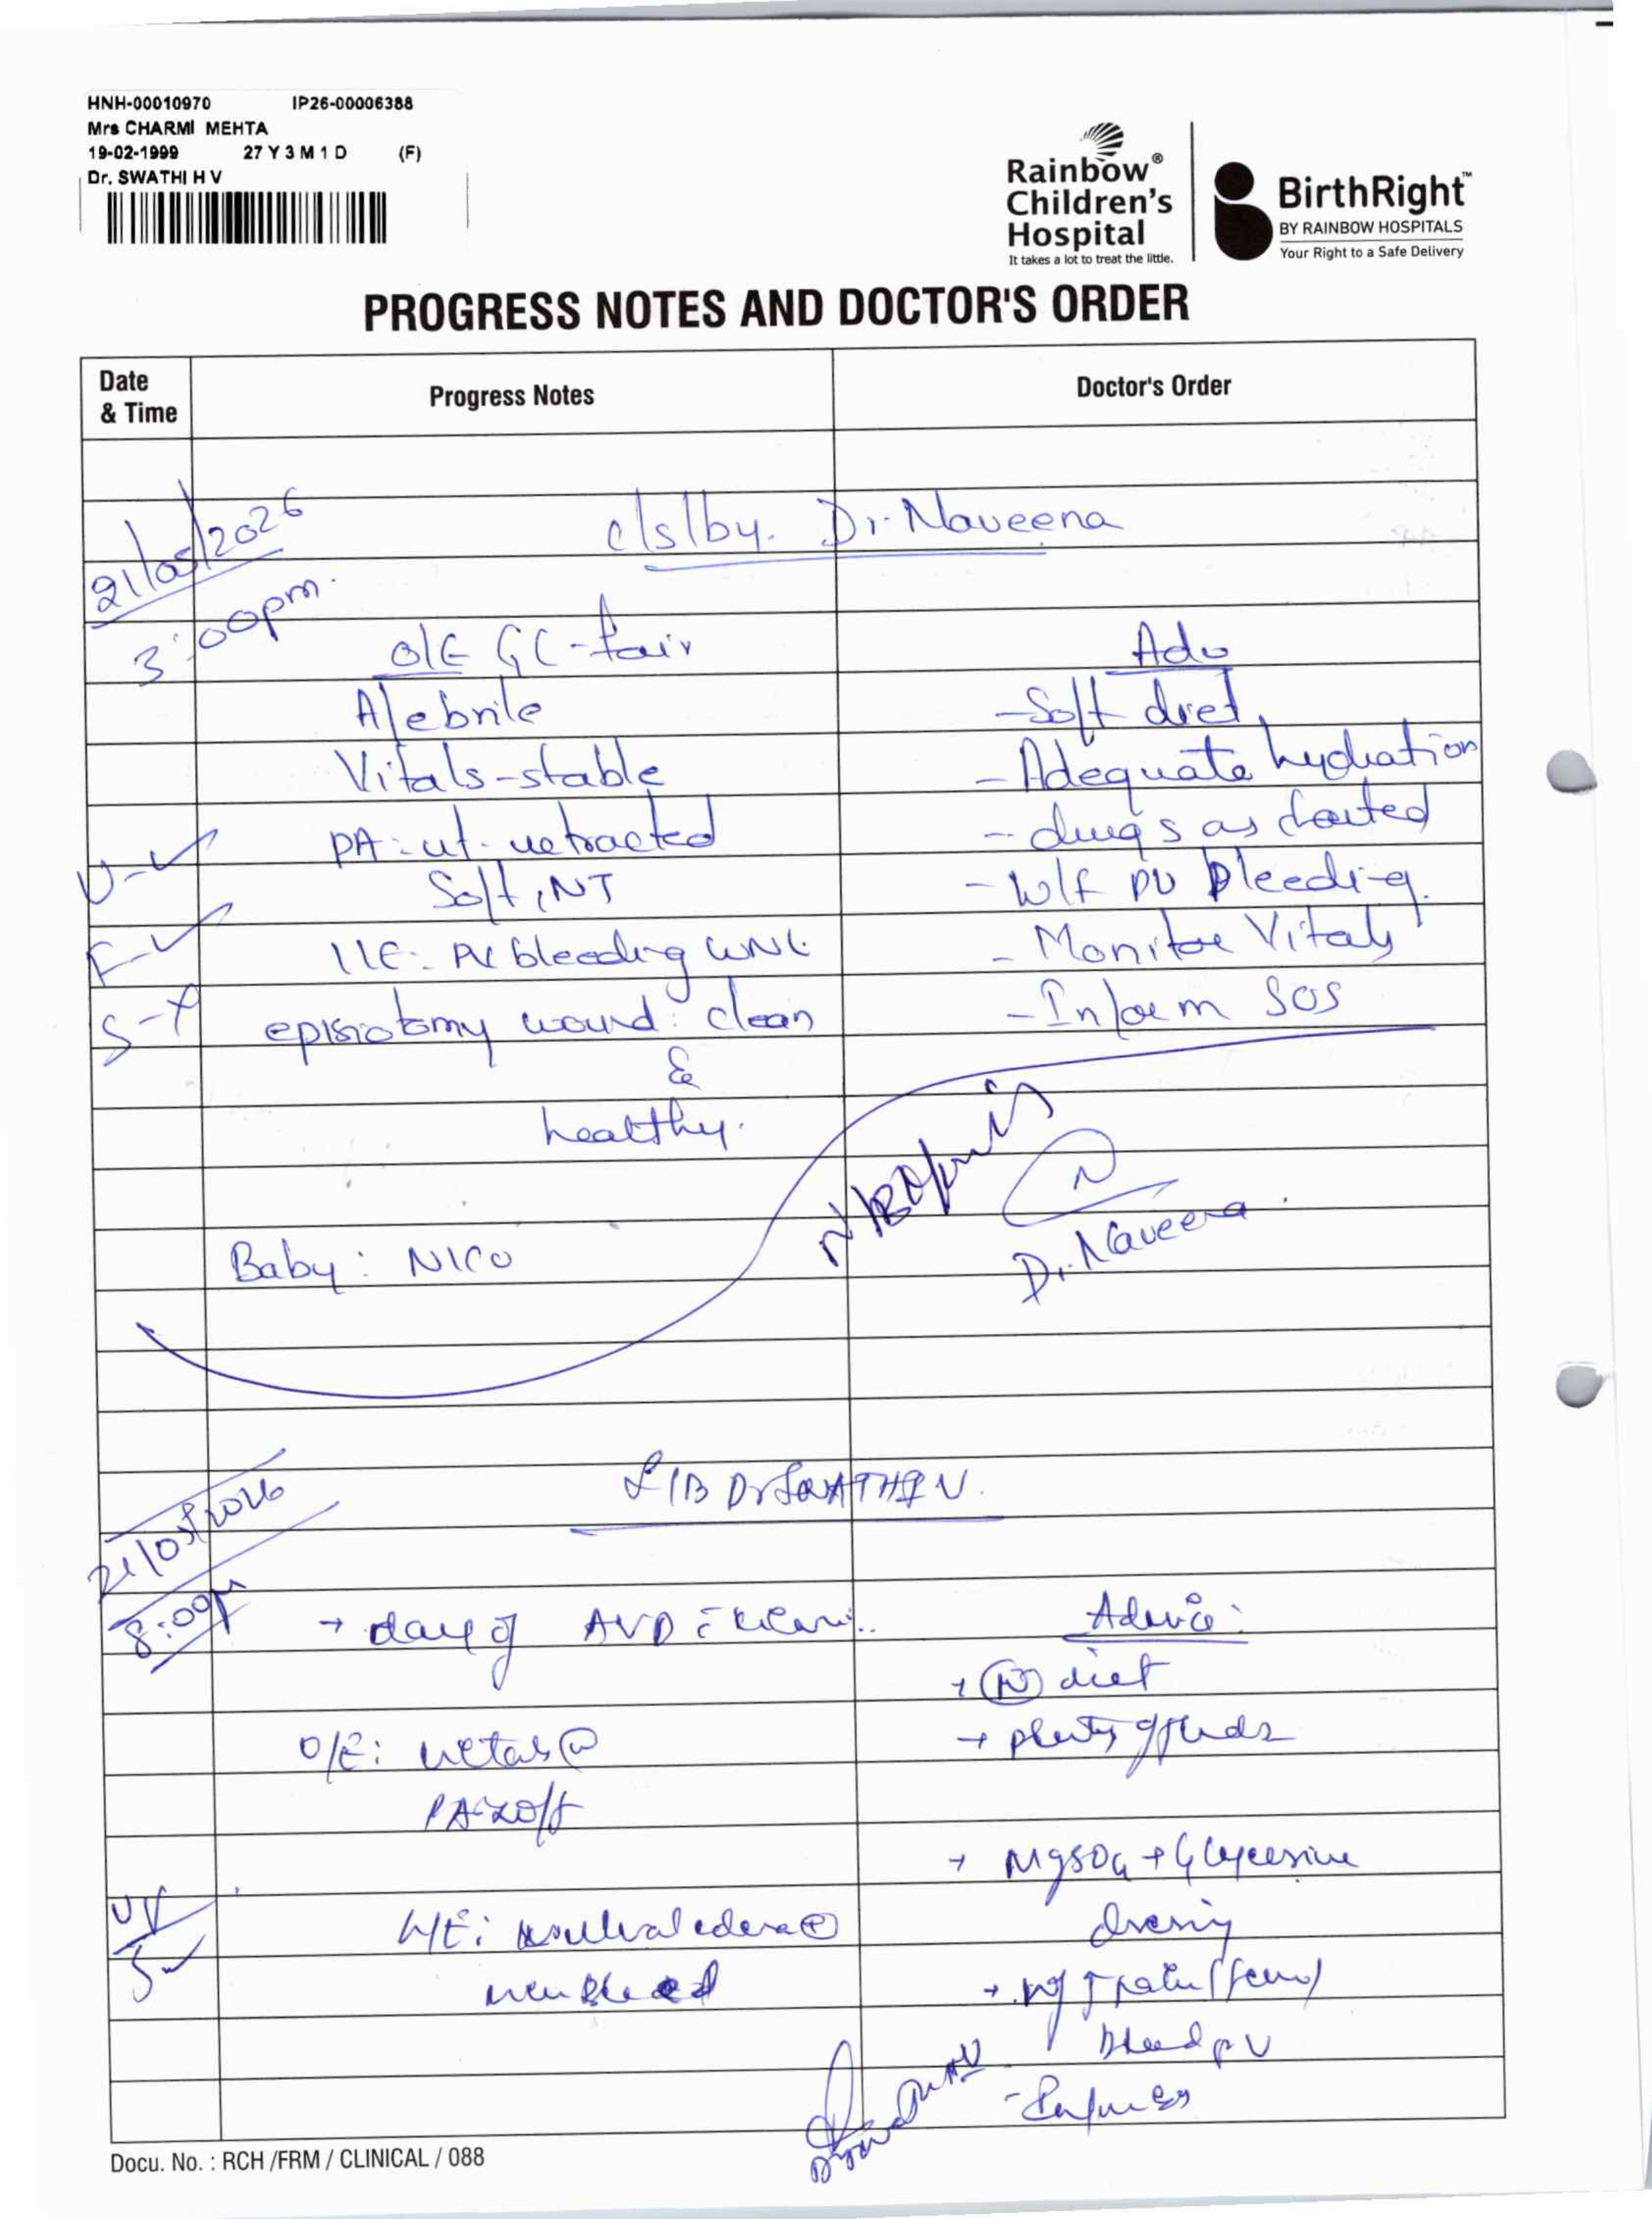 HNH-00010970 IP26-00006388
Mrs CHARMI MEHTA
19-02-1999 27 Y 3 M 1 D (F)
Dr. SWATHI H V
Rainbow®
Children's
Hospital
It takes a lot to treat the little.
BirthRight™
BY RAINBOW HOSPITALS
Your Right to a Safe Delivery
PROGRESS NOTES AND DOCTOR'S ORDER
Date & Time Progress Notes Doctor's Order
21/05/2026 c/s/by. Dr. Naveena
3:00pm.
O/E GC-fair Adv
Afebrile -Soft diet
Vitals-stable -Adequate hydration
U-✓ PA: ut. retracted - drugs as charted
Soft, NT - W/f PV bleeding.
F-✓ L/E: PV bleeding WNL - Monitor Vitals
S-x episiotomy wound: clean -Inform SOS
&
healthy.
N
Baby: NICU Dr. Naveena
21/05/2026 S/B Dr SWATHI H V.
8:00p → day of AVD Advice:
→ (N) diet
O/E: vitals → plenty of fluids
PA-soft
→ MgSO4 + Glycerine
U✓ L/E: vulval edema dressing
S✓ bleed → pain
bleed p V
Docu. No. : RCH /FRM / CLINICAL / 088